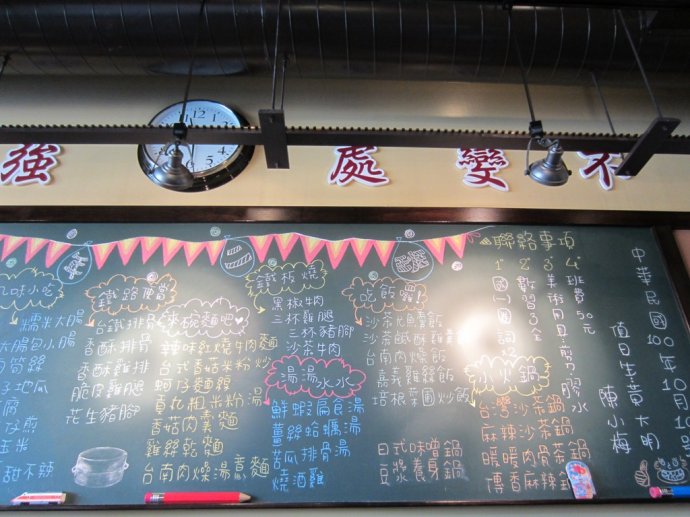 強 處 變 不
聯絡事項
1.國(一)詞
2.數習3全
3.美術用具剪刀膠水
4.班費50元
中華民國100年10月
值日生黃大明
陳小梅
味小吃
糯米大腸
大腸包小腸
筒筍
子地瓜
腐
煎
玉米
甜不辣
鐵路便當
台鐵排骨
香酥排骨
香酥雞排
脆皮雞腿
花生豬腳
來碗麵吧
辣味紅燒牛肉麵
台式香菇米粉炒
蚵仔麵線
貢丸粗米粉湯
香菇肉羹麵
雞絲乾麵
台南肉燥湯意麵
鐵板燒
黑椒牛肉
三杯雞腿
三杯豬腳
沙茶牛肉
湯湯水水
鮮蝦扁食湯
薑絲蛤蠣湯
苦瓜排骨湯
燒酒雞
吃飯囉
沙茶魷魚羹飯
沙茶鹹酥雞飯
台南肉燥飯
嘉義雞絲飯
培根菜圃炒飯
小火鍋
台灣沙茶鍋
麻辣沙茶鍋
暖暖肉骨茶鍋
傳香麻辣鍋
日式味噌鍋
豆漿養身鍋